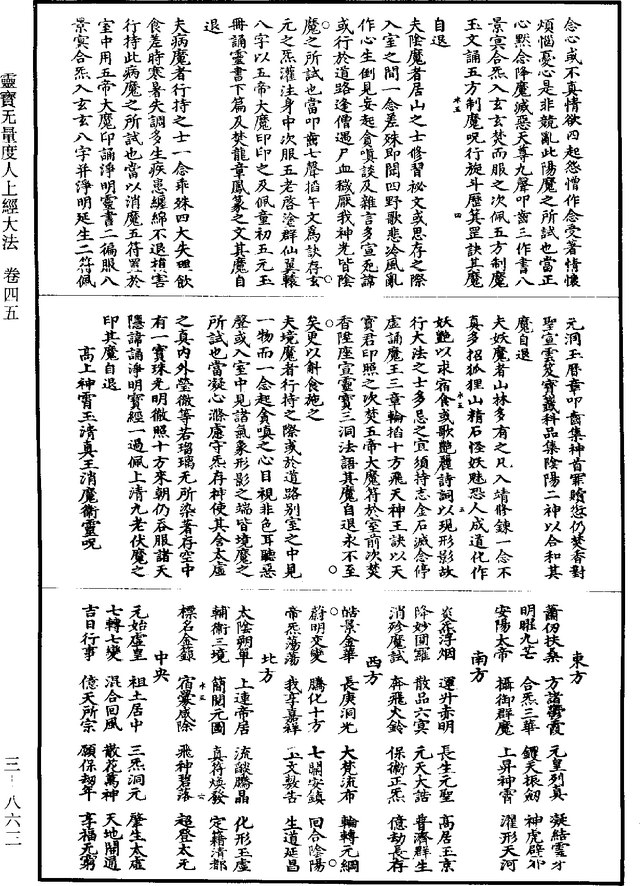 念心或不真情欲四起怨憎作念受著情懷
煩惱憂心是非競亂此陽魔之所試也當正
心黙念降魔滅惡天尊九聲叩齒三作書八
景寞合炁入玄玄焚而服之次佩五方制魔
玉文誦五方制魔呪行旋斗歷箕罡訣其魔
自退
夫陰魔者居山之士修習祕文或思存之際
入室之間一念差殊即聞四野歌悲冷風亂
作心生倒見妄起貪嗔談及雜言多宣死諱
或行於道路逢僧遇尸血穢厭我神光皆陰
魔之所試也當叩齒七聲掐午文爲訣存玄
元之炁灌注身中次服五老啓塗群仙翼轅
八字以五帝大魔印印之及佩童初五元玉
冊誦靈書下篇及焚龍章鳳篆之文其魔自
退
夫病魔者行持之士一念乖殊四大失理飲
食差時寒暑失調多生疾患纏綿不退損害
行持此病魔之所試也當以消魔五符置於
室中用五帝大魔印誦淨明靈書二徧服八
景寞合炁入玄玄八字并淨明延生二符佩
元洞玉曆章叩齒集神首罪贖愆仍焚香對
聖宣雲笈寶籖科品集陰陽二神以合和其
魔自退
夫妖魔者山林多有之凡入靖修鍊一念不
真多招狐狸山精石怪妖魅惑人成道化作
妖艷以求宿食或歌艷麗詩詞以現形影故
行大法之士多忌之宜須持志金石滅念停
虛誦魔王三章輪掐十方飛天神王訣以天
寶君印照之次焚五帝大魔符於室前次焚
香陞座宣靈寶三洞法語其魔自退永不至
矣更以斛食施之
夫境魔者行持之際或於道路別室之中見
一物而一念起貪嗔之心目視非色耳聽惡
聲或入室中見諸氣象形影之端皆境魔之
所試也當凝心滌慮守炁存神使其含太虛
之真内外瑩徹等若瑠璃无所染著存空中
有一寶珠光明徹照十方來朝仍吞服諸天
隱諱誦淨明寶經一過佩上清九老伏魔之
印其魔自退
高上神霄玉清真王消魔衛靈呪
東方
蕭仭扶桑 方諸霱霞 元皇列真 凝結靈才
明暉九芒 合炁三華 鑼天振劒 神虎辟邪
安陽太帝 攝御群魔 上昇神霄 濯形天河
南方
炎㷍浮烟 運升赤明 長生元聖 高居玉京
降妙囬羅 散品六㝠 元天大誥 普濟群生
消殄魔試 奔飛火鈴 保衛正炁 億劫長存
西方
皓景金華 長庚洞光 大梵流布 輪轉元綱
蔚明交變 騰化十方 七關安鎮 回合陰陽
帝炁蕩蕩 我享嘉祥 玉文敷告 生道延昌
北方
太陰朔單 上連帝居 流燄騰晶 化形玉虛
輔衛三境 簡閱元圖 真符煥發 定籍清都
標名金籙 宿釁咸除 飛神碧落 超登太无
中央
元始虛皇 祖土居中 三炁洞元 肇生太虛
七轉七變 混合回風 散花萬神 天地開通
吉日行事 億天所宗 願保劫年 享福无窮
靈寶无量度人上經大法 卷四五
三－八六三